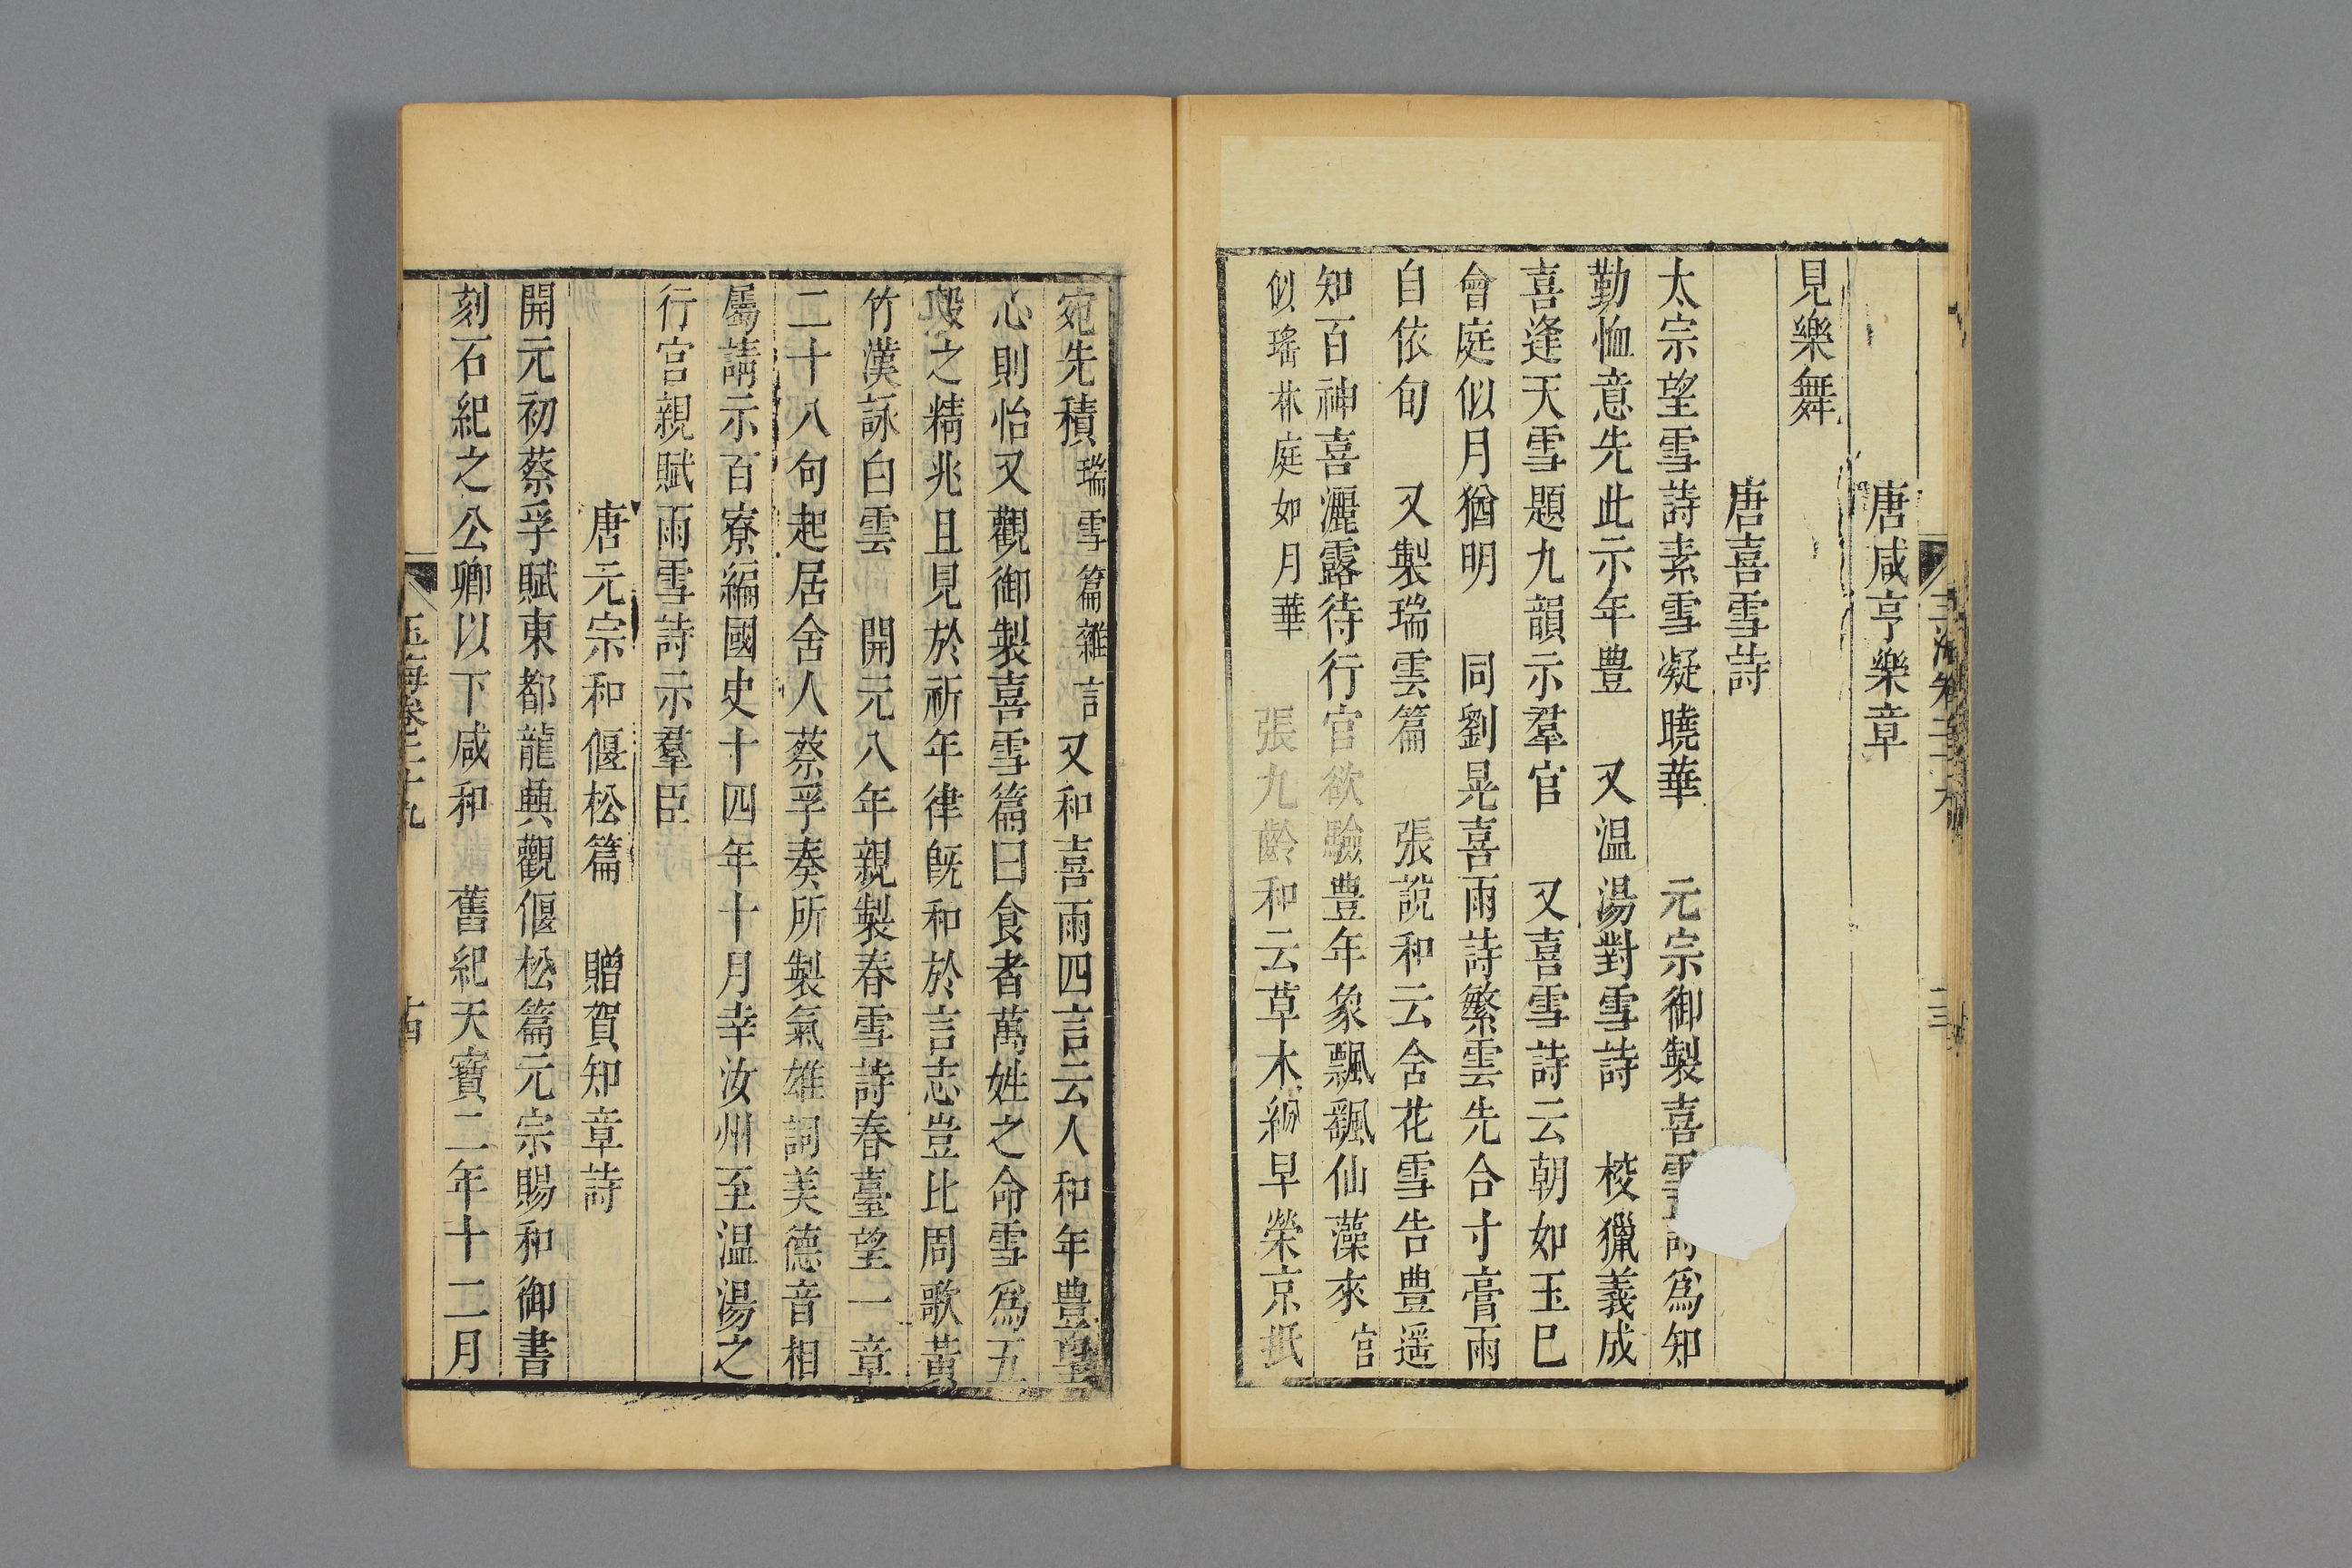 唐咸亨樂章
見樂舞
唐喜雪詩
太宗望雪詩素雪凝曉華 元宗御製喜雪詩爲知
勤恤意先此示年豊 又温湯對雪詩 校獵義成
喜逢天雪題九韻示羣官 又喜雪詩云朝如玉巳
會庭似月猶明 同劉晃喜雨詩繁雲先合寸膏雨
自依旬 又製瑞雲篇 張說和云舍花雪告豊遥
知百神喜灑露待行官欲驗豊年象飄颻仙藻來官
似瑤林庭如月華 張九齡和云草木紛早榮京抵
宛先積瑞雪篇雜言又和喜雨四言云人和年豊皇
心則怡又觀御製喜雪篇曰食者萬姓之命雪爲五
穀之精兆且見於祈年律旣和於言志豈比周歌黃
竹漢詠白雲 開元八年親製春雪詩春臺望一章
二十八句起居舍人蔡孚奏所製氣雄詞美德音相
屬請示百寮編國史十四年十月幸汝州至温湯之
行宫親賦雨雪詩示羣臣
唐元宗和偃松篇 贈賀知章詩
開元初蔡孚賦東都龍興觀偃松篇元宗賜和御書
刻石紀之公卿以下咸和 舊紀天寶二年十二月
玉海卷二十九 十四